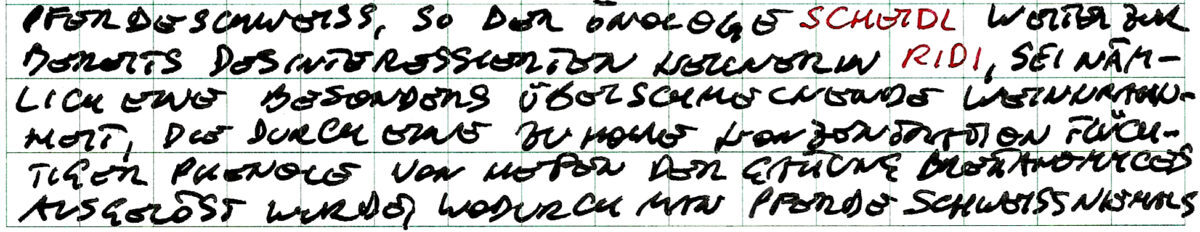 PFERDESCHWEISS, SO DER ÖNOLOGE SCHEIDL WEITER ZUR
BEREITS DESINTERESSIERTEN KELLNERIN RIDI, SEI NÄM-
LICH EINE BESONDERS ÜBELSCHMECKENDE WEINKRANK-
HEIT, DIE DURCH EINE ZU HOHE KONZENTRATION FLÜCH-
TIGER PHENOLE VON HEFEN DER GATTUNG BRETTANOMYCES
AUSGELÖST WÜRDE, WODURCH MAN PFERDESCHWEISS NIEMALS